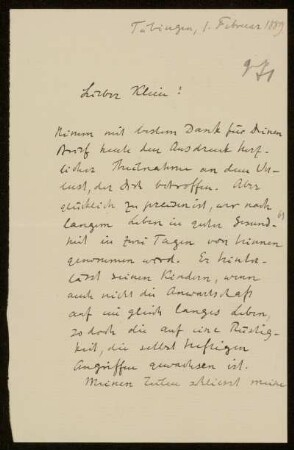 Tübingen, 1. Februar 1889
Lieber Klein!
Nimm mit bestem Dank für Deinen
Brief heute den Ausdruck herz-
licher Theilnahme an dem Ver-
lust, der Dich betroffen. Aber
glücklich zu preisen ist, wer nach
langem Leben in guter Gesund-
heit in zwei Tagen von hinnen
genommen wird. Er hinter-
lässt seinen Kindern, wenn
auch nicht die Anwartschaft
auf ein gleich langes Leben,
so doch die auf eine Rüstig-
keit, die selbst heftigen
Angriffen gewachsen ist.
Meinen Zeilen schliesst meine